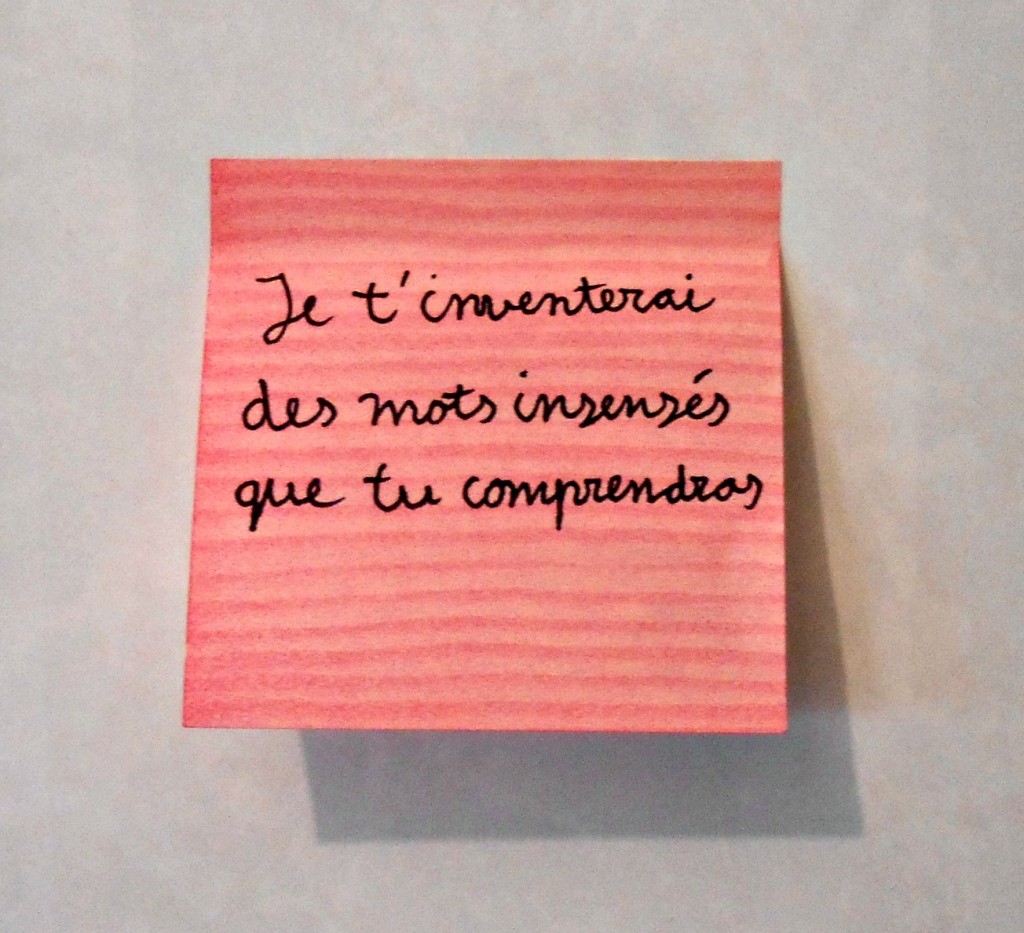 Je t'inventerai
des mots insensés
que tu comprendras